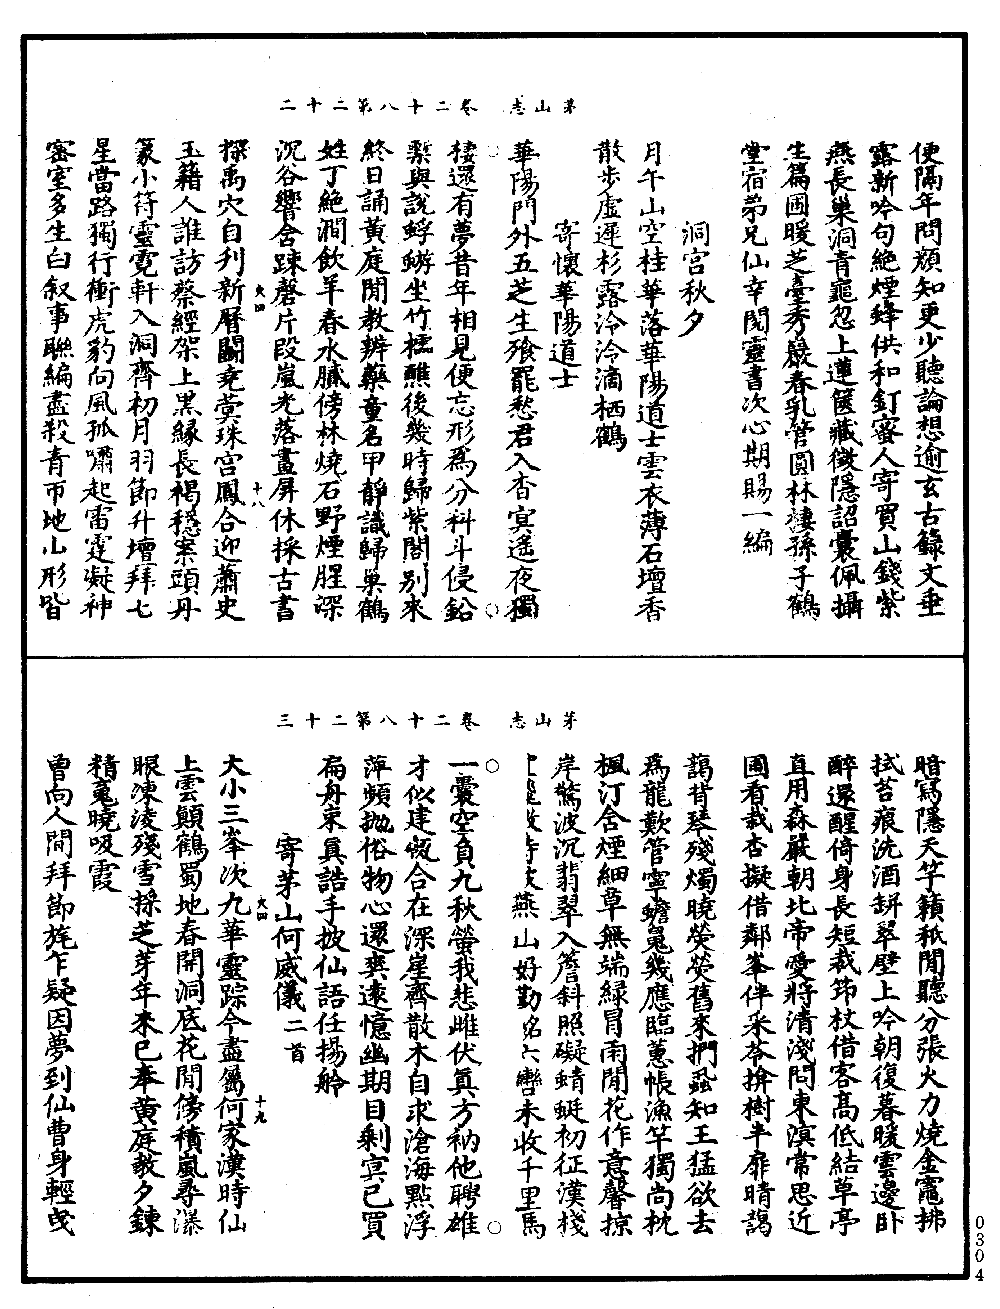 茅山志　卷二十八第二十二
便隔年問頹知更少聽論想逾玄古籙文垂
露新吟句絕煙鋒供和釘蜜人寄買山錢紫
燕長巢洞青龜忽上蓮匳藏徵隱詔囊佩攝
生篇圃暖芝臺秀巖春乳管圓林棲孫子鶴
堂宿弟兄仙幸閱靈書次心期賜一編
洞宮秋夕
月午山空桂華落華陽道士雲衣薄石壇香
散步虛遲杉露泠泠滴栖鶴
寄懷華陽道士
華陽門外五芝生飡罷愁君入杳冥遙夜獨
棲還有夢昔年相見便忘形為分科斗侵鉛
槧與說蜉蝣坐竹檽醮後幾時歸紫閣別來
終日誦黃庭閒教辨藥童名甲靜識歸巢鶴
姓丁絕澗飲羊春水膩傍林燒石野煙腥深
沉谷響含疎磬片段嵐光落畫屏休採古書
探禹穴自刋新曆鬭堯蓂珠宮鳳合迎蕭史
玉籍人誰訪蔡經架上黑緣長褐穩案頭丹
篆小符靈霓軒入洞齊初月羽節升壇拜七
星當路獨行衝虎豹向風孤嘯起雷霆凝神
密室多生白叙事聯編盡殺青帀地山形皆
火四
十八
茅山志　卷二十八第二十三
暗寫隱天竽籟秪閒聽分張火力燒金竈拂
拭苔痕洗酒缾翠壁上吟朝復暮暖雲邊卧
醉還醒倚身長短裁筇杖借客高低結草亭
直用森嚴朝北帝愛將清淺問東溟常思近
圃看栽杏擬借鄰峯伴采苓掩樹半扉晴藹
藹背琴殘燭曉熒熒舊來捫蝨知王猛欲去
為龍歎管寧蟾魄幾應臨蕙帳漁竿獨尚枕
楓汀含煙細草無端緑冒雨閒花作意馨掠
岸驚波沉翡翠入簷斜照礙蜻蜓初征漢棧
燕山好勤 六轡未收千里馬
一囊空負九秋螢我悲雌伏真方衲他騁雄
才似建瓴合在深崖齊散木自求滄海點浮
萍頻拋俗物心還爽遠憶幽期目剩㝠已買
扁舟束真誥手披仙語任揚舲
寄茅山何威儀二首
大小三峯次九華靈踪今盡屬何家漢時仙
上雲顛鶴蜀地春開洞底花閒傍積嵐尋瀑
眼凍淩殘雪採芝芽年來已奉黃庭教夕鍊
精魂曉吸霞
曾向人間拜節旄乍疑因夢到仙曹身輕曳
火四
十九
0304